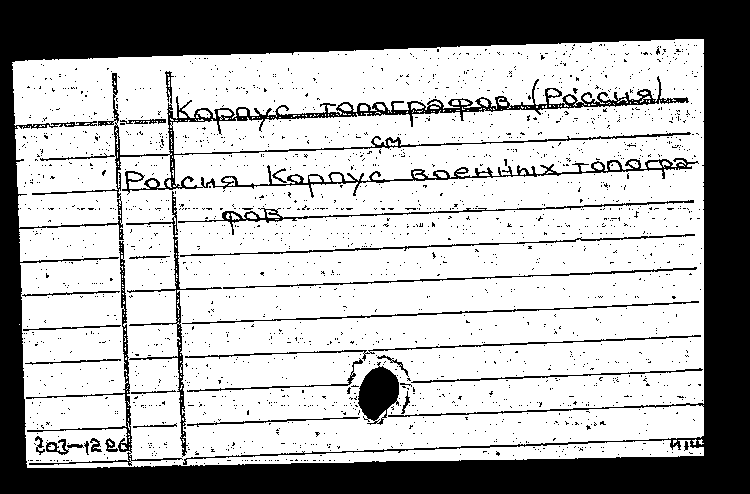 Корпус топографов (Россия)
см
Россия. Корпус военных топогра
фов
203-1226